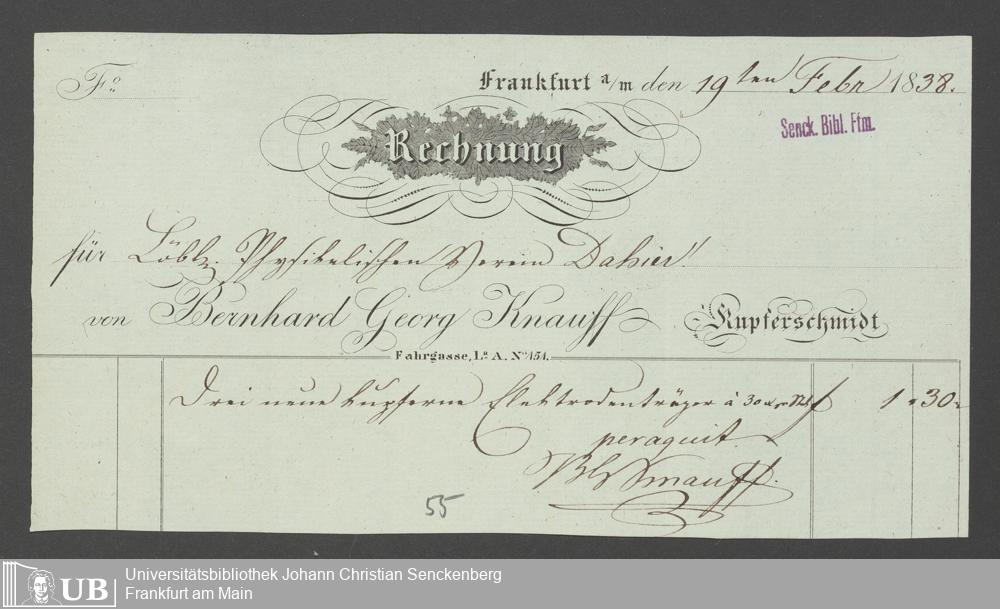 Fo.
Frankfurt a/m den 19ten Febr 1838.
Senck. Bibl. Ffm.
Rechnung
für Löbl. Physikalischen Verein Dahier
von Bernhard Georg Knauff Kupferschmidt
Fahrgasse, La A. No 154.
Drei neue kupferne Elektrodenträger à 30 f 1 . 30
peraquit
BG Knauff.
55
UB
Universitätsbibliothek Johann Christian Senckenberg
Frankfurt am Main